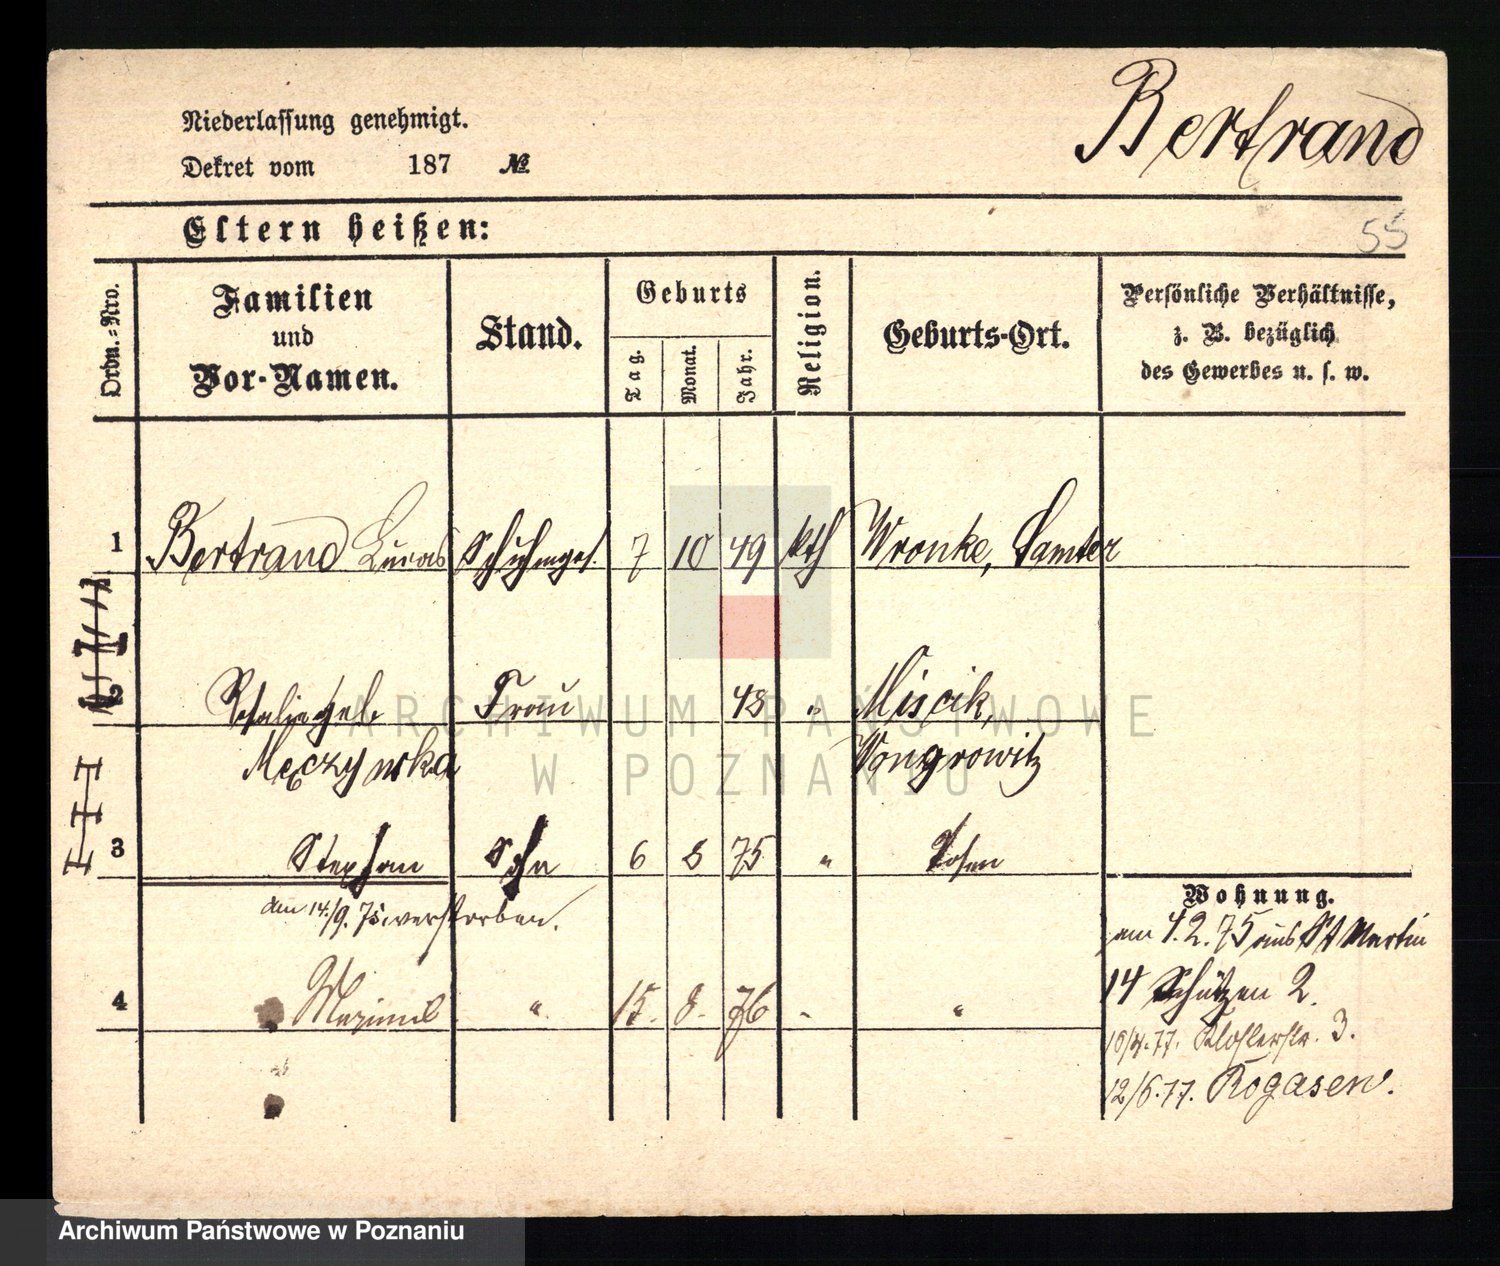 Niederlassung genehmigt.
Dekret vom 187 №
Bertrand
Eltern heißen:
55
Ordn.=Nro.
Familien
und
Vor-Namen.
Stand.
Geburts
Tag.
Monat.
Jahr.
Religion.
Geburts-Ort.
Persönliche Verhältnisse,
z. B. bezüglich
des Gewerbes u. s. w.
1 Bertrand Lucas Schuhmges. 7 10 49 kth Wronke, Samter
2 geb. Frau 48 " Miscik,
Męczynska Wongrowitz
3 Stephan Sohn 6 8 75 " Posen
am 14./9. 75. verstorben.
Wohnung.
am 4.2.75 aus St Martin
4 " 15. 8. 76 "
14 Schützen 2.
Klosterstr. 3.
12/6.77. Rogasen.
ARCHIWUM PAŃSTWOWE
W POZNANIU
Archiwum Państwowe w Poznaniu